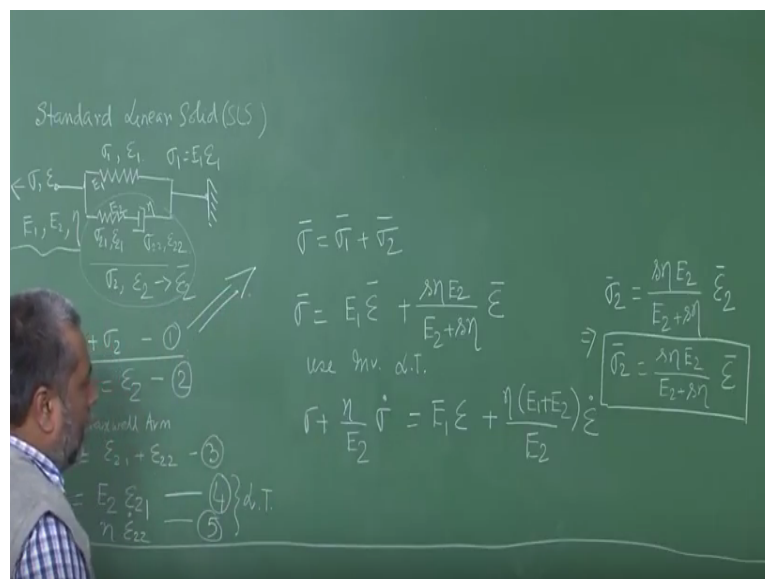 Standard Linear Solid (SLS)
σ₁, ε₁ σ₁=E₁ε₁
σ, ε E₁
E₂ η
E₁, E₂, η σ₂₁, ε₂₁ σ₂₂, ε₂₂
σ₂, ε₂ → ε̄₂
+ σ₂ - ①
= ε₂ - ②
Maxwell Arm
= ε₂₁ + ε₂₂ - ③
= E₂ ε₂₁ — ④
η ε̇₂₂ — ⑤ } L.T.
σ̄ = σ̄₁ + σ̄₂
σ̄ = E₁ ε̄ + sηE₂/(E₂+sη) ε̄
use Inv. L.T.
σ + η/E₂ σ̇ = E₁ ε + η(E₁+E₂)/E₂ ε̇
σ̄₂ = sηE₂/(E₂+sη) ε̄₂
⇒ σ̄₂ = sηE₂/(E₂+sη) ε̄